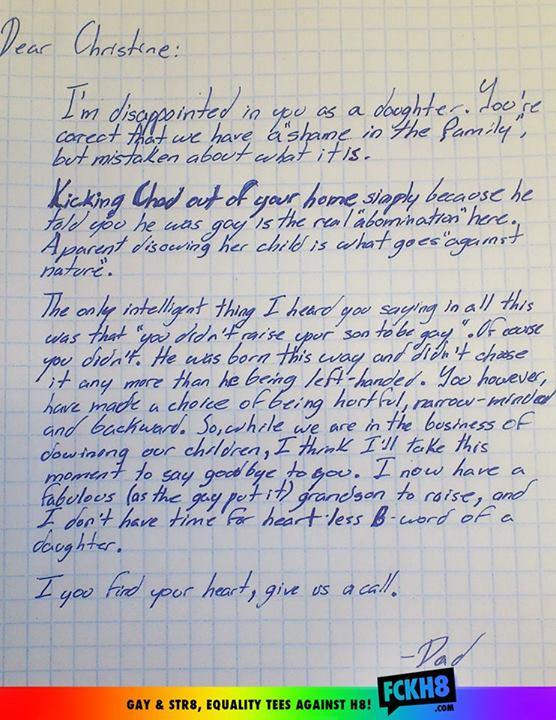 Dear Christine:
I'm disappointed in you as a daughter. You're
corect that we have a "shame in the family",
but mistaken about what it is.
Kicking Chad out of your home simply because he
told you he was gay is the real "abomination" here.
A parent disowing her child is what goes "against
nature".
The only intelligent thing I heard you saying in all this
was that "you didn't raise your son to be gay". Of course
you didn't. He was born this way and didn't choose
it any more than he being left-handed. You however,
have made a choice of being hurtful, narrow-minded
and backward. So, while we are in the business of
dowinong our children, I think I'll take this
moment to say goodbye to you. I now have a
fabulous (as the gay put it) grandson to raise, and
I don't have time for heart-less B-word of a
daughter.
I you find your heart, give us a call.
-Dad
GAY & STR8, EQUALITY TEES AGAINST H8!
FCKH8
.COM